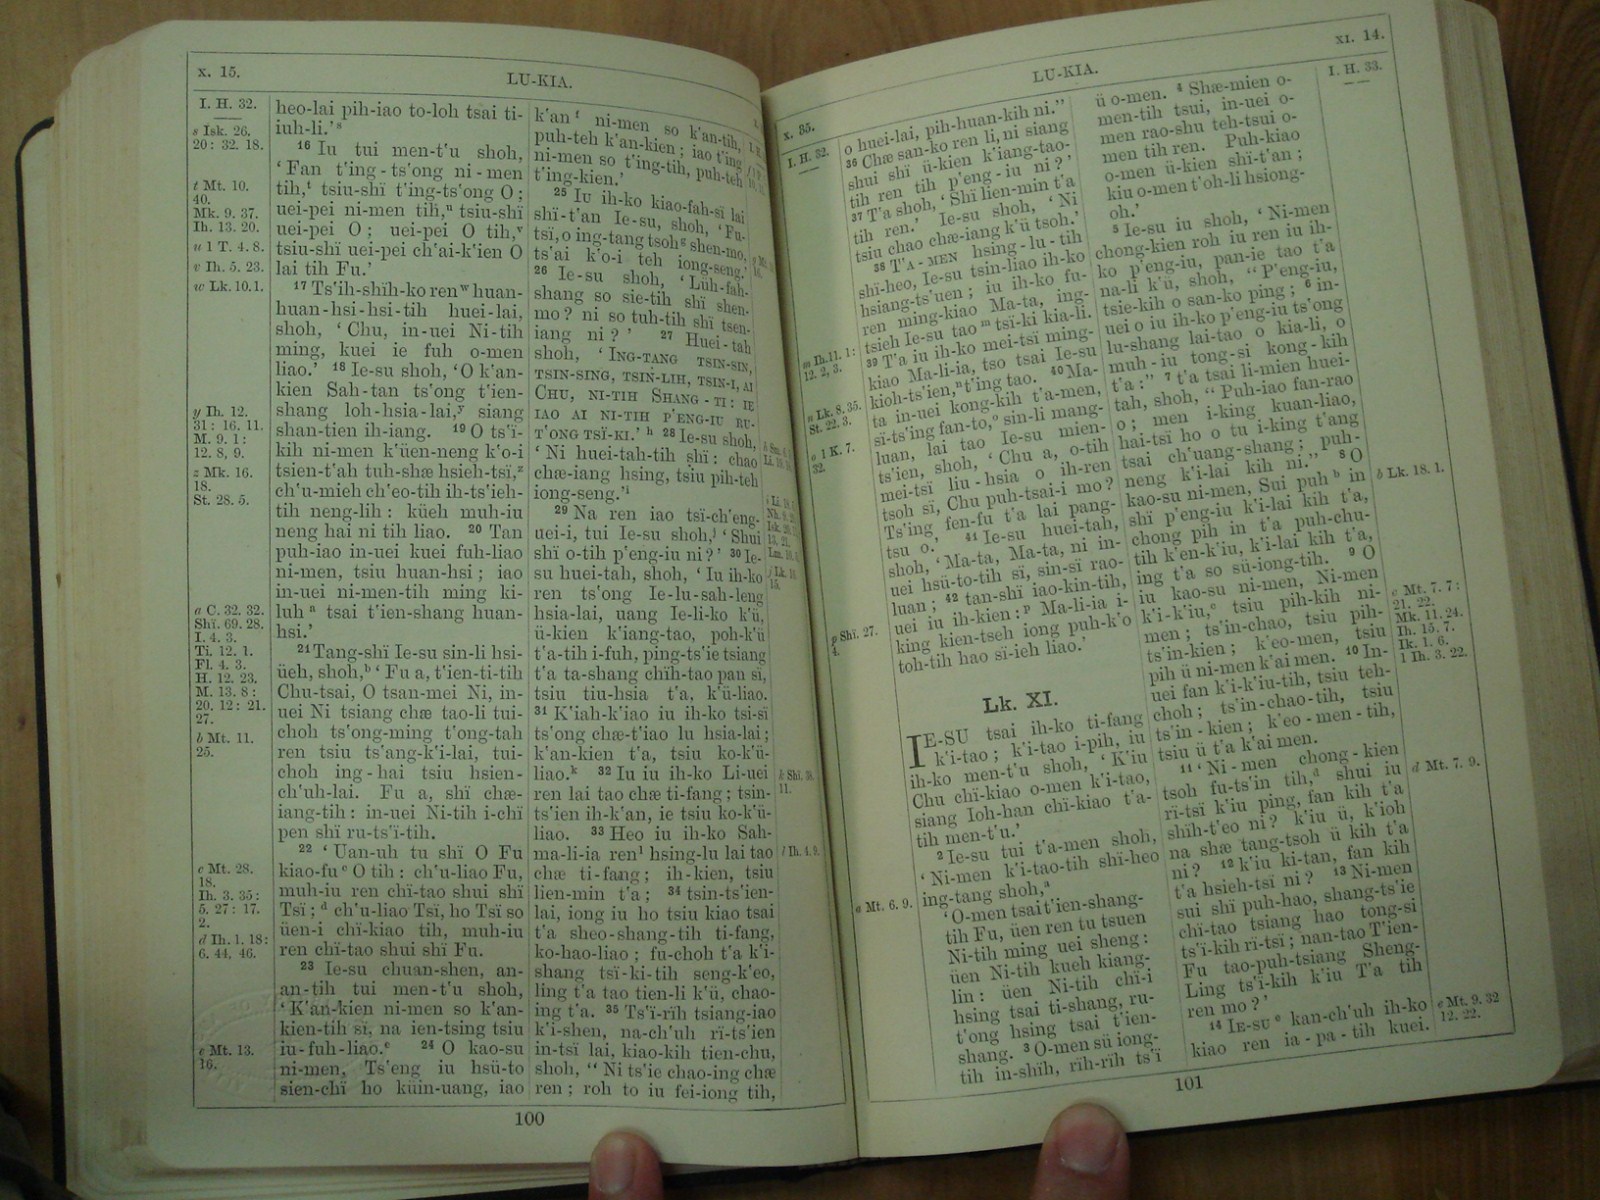 x. 15.
LU-KIA.
I. H. 32.
s Isk. 26.
20: 32. 18.
t Mt. 10.
40.
Mk. 9. 37.
Ih. 13. 20.
u 1 T. 4. 8.
v Ih. 5. 23.
w Lk. 10. 1.
y Ih. 12.
31: 16. 11.
M. 9. 1:
12. 8, 9.
z Mk. 16.
18.
St. 28. 5.
a C. 32. 32.
Shï. 69. 28.
I. 4. 3.
Ti. 12. 1.
Fl. 4. 3.
H. 12. 23.
M. 13. 8:
20. 12: 21.
27.
b Mt. 11.
25.
c Mt. 28.
18.
Ih. 3. 35:
5. 27: 17.
2.
d Ih. 1. 18:
6. 44, 46.
e Mt. 13.
16.
heo-lai pih-iao to-loh tsai ti-
iuh-li.’ s
16 Iu tui men-t‘u shoh,
‘ Fan t‘ing-ts‘ong ni-men
tih, t tsiu-shï t‘ing-ts‘ong O ;
uei-pei ni-men tih, u tsiu-shï
uei-pei O ; uei-pei O tih, v
tsiu-shï uei-pei ch‘ai-k‘ien O
lai tih Fu.’
17 Ts‘ih-shïh-ko ren w huan-
huan-hsi-hsi-tih huei-lai,
shoh, ‘ Chu, in-uei Ni-tih
ming, kuei ie fuh o-men
liao.’ 18 Ie-su shoh, ‘O k‘an-
kien Sah-tan ts‘ong t‘ien-
shang loh-hsia-lai, y siang
shan-tien ih-iang. 19 O ts‘ï-
kih ni-men k‘üen-neng k‘o-i
tsien-t‘ah tuh-shæ hsieh-tsï, z
ch‘u-mieh ch‘eo-tih ih-ts‘ieh-
tih neng-lih : küeh muh-iu
neng hai ni tih liao. 20 Tan
puh-iao in-uei kuei fuh-liao
ni-men, tsiu huan-hsi ; iao
in-uei ni-men-tih ming ki-
luh a tsai t‘ien-shang huan-
hsi.’
21 Tang-shï Ie-su sin-li hsi-
üeh, shoh, b ‘ Fu a, t‘ien-ti-tih
Chu-tsai, O tsan-mei Ni, in-
uei Ni tsiang chæ tao-li tui-
choh ts‘ong-ming t‘ong-tah
ren tsiu ts‘ang-k‘i-lai, tui-
choh ing-hai tsiu hsien-
ch‘uh-lai. Fu a, shï chæ-
iang-tih : in-uei Ni-tih i-chï
pen shï ru-ts‘ï-tih.
22 ‘ Uan-uh tu shï O Fu
kiao-fu c O tih : ch‘u-liao Fu,
muh-iu ren chï-tao shui shï
Tsï ; d ch‘u-liao Tsï, ho Tsï so
üen-i chï-kiao tih, muh-iu
ren chï-tao shui shï Fu.
23 Ie-su chuan-shen, an-
an-tih tui men-t‘u shoh,
‘ K‘an-kien ni-men so k‘an-
kien-tih sï, na ien-tsing tsiu
iu-fuh-liao. e 24 O kao-su
ni-men, Ts‘eng iu hsü-to
sien-chï ho küin-uang, iao
k‘an f ni-men so k‘an-tih,
puh-teh k‘an-kien ; iao t‘ing
ni-men so t‘ing-tih, puh-teh
t‘ing-kien.’
25 Iu ih-ko kiao-fah-sï lai
shï-t‘an Ie-su, shoh, ‘Fu-
tsï, o ing-tang tsoh g shen-mo,
ts‘ai k‘o-i teh iong-seng.’
26 Ie-su shoh, ‘ Lüh-fah-
shang so sie-tih shï shen-
mo ? ni so tuh-tih shï tsen-
iang ni ? ’ 27 Huei-tah
shoh, ‘ ING-TANG TSIN-SIN,
TSIN-SING, TSIN-LIH, TSIN-I, AI
CHU, NI-TIH SHANG-TI : IE
IAO AI NI-TIH P‘ENG-IU RU-
T‘ONG TSÏ-KI.’ h 28 Ie-su shoh,
‘ Ni huei-tah-tih shï : chao
chæ-iang hsing, tsiu pih-teh
iong-seng.’ i
29 Na ren iao tsï-ch‘eng-
uei-i, tui Ie-su shoh, j ‘ Shui
shï o-tih p‘eng-iu ni ? ’ 30 Ie-
su huei-tah, shoh, ‘ Iu ih-ko
ren ts‘ong Ie-lu-sah-leng
hsia-lai, uang Ie-li-ko k‘ü,
ü-kien k‘iang-tao, poh-k‘ü
t‘a-tih i-fuh, ping-ts‘ie tsiang
t‘a ta-shang chïh-tao pan sï,
tsiu tiu-hsia t‘a, k‘ü-liao.
31 K‘iah-k‘iao iu ih-ko tsi-sï
ts‘ong chæ-t‘iao lu hsia-lai ;
k‘an-kien t‘a, tsiu ko-k‘ü-
liao. k 32 Iu iu ih-ko Li-uei
ren lai tao chæ ti-fang ; tsin-
ts‘ien ih-k‘an, ie tsiu ko-k‘ü-
liao. 33 Heo iu ih-ko Sah-
ma-li-ia ren l hsing-lu lai tao
chæ ti-fang ; ih-kien, tsiu
lien-min t‘a ; 34 tsin-ts‘ien-
lai, iong iu ho tsiu kiao tsai
t‘a sheo-shang-tih ti-fang,
ko-hao-liao ; fu-choh t‘a k‘i-
shang tsï-ki-tih seng-k‘eo,
ling t‘a tao tien-li k‘ü, chao-
ing t‘a. 35 Ts‘ï-rïh tsiang-iao
k‘i-shen, na-ch‘uh rï-ts‘ien
in-tsï lai, kiao-kih tien-chu,
shoh, “ Ni ts‘ie chao-ing chæ
ren ; roh to iu fei-iong tih,
j Lk. 10.
15.
k Shï. 38.
11.
l Ih. 4. 9.
100
x. 35.
LU-KIA.
XI. 14.
I. H. 32.
m Ih. 11. 1:
12. 2, 3.
n Lk. 8. 35.
St. 22. 3.
o 1 K. 7.
32.
p Shï. 27.
4.
a Mt. 6. 9.
o huei-lai, pih-huan-kih ni.”
36 Chæ san-ko ren li, ni siang
shui shï ü-kien k‘iang-tao-
tih ren tih p‘eng-iu ni ? ’
37 T‘a shoh, ‘ Shï lien-min t‘a
tih ren.’ Ie-su shoh, ‘ Ni
tsiu chao chæ-iang k‘ü tsoh.’
38 T‘A-MEN hsing-lu-tih
shï-heo, Ie-su tsin-liao ih-ko
hsiang-ts‘uen ; iu ih-ko fu-
ren ming-kiao Ma-ta, ing-
tsieh Ie-su tao m tsï-ki kia-li.
39 T‘a iu ih-ko mei-tsï ming-
kiao Ma-li-ia, tso tsai Ie-su
kioh-ts‘ien, n t‘ing tao. 40 Ma-
ta in-uei kong-kih t‘a-men,
sï-ts‘ing fan-to, o sin-li mang-
luan, lai tao Ie-su mien-
ts‘ien, shoh, ‘ Chu a, o-tih
mei-tsï liu-hsia o ih-ren
tsoh sï, Chu puh-tsai-i mo ?
Ts‘ing fen-fu t‘a lai pang-
tsu o.’ 41 Ie-su huei-tah,
shoh, ‘ Ma-ta, Ma-ta, ni in-
uei hsü-to-tih sï, sin-sï rao-
luan ; 42 tan-shï iao-kin-tih,
uei iu ih-kien : p Ma-li-ia i-
king kien-tseh iong puh-k‘o
toh-tih hao sï-ieh liao.’
Lk. XI.
IE-SU tsai ih-ko ti-fang
k‘i-tao ; k‘i-tao i-pih, iu
ih-ko men-t‘u shoh, ‘ K‘iu
Chu chï-kiao o-men k‘i-tao,
siang Ioh-han chï-kiao t‘a-
tih men-t‘u.’
2 Ie-su tui t‘a-men shoh,
‘ Ni-men k‘i-tao-tih shï-heo
ing-tang shoh, a
‘ O-men tsai t‘ien-shang-
tih Fu, üen ren tu tsuen
Ni-tih ming uei sheng :
üen Ni-tih kueh kiang-
lin : üen Ni-tih chï-i
hsing tsai ti-shang, ru-
t‘ong hsing tsai t‘ien-
shang. 3 O-men sü iong-
tih in-shïh, rïh-rïh ts‘ï
ü o-men. 4 Shæ-mien o-
men-tih tsui, in-uei o-
men rao-shu teh-tsui o-
men tih ren. Puh-kiao
o-men ü-kien shï-t‘an ;
kiu o-men t‘oh-li hsiong-
oh.’
5 Ie-su iu shoh, ‘ Ni-men
chong-kien roh iu ren iu ih-
ko p‘eng-iu, pan-ie tao t‘a
na-li k‘ü, shoh, “ P‘eng-iu,
tsie-kih o san-ko ping ; 6 in-
uei o iu ih-ko p‘eng-iu ts‘ong
lu-shang lai-tao o kia-li, o
muh-iu tong-si kong-kih
t‘a : ” 7 t‘a tsai li-mien huei-
tah, shoh, “ Puh-iao fan-rao
o ; men i-king kuan-liao,
hai-tsï ho o tu i-king t‘ang
tsai ch‘uang-shang ; puh-
neng k‘i-lai kih ni.” 8 O
kao-su ni-men, Sui puh b in
shï p‘eng-iu k‘i-lai kih t‘a,
chong pih in t‘a puh-chu-
tih k‘en-k‘iu, k‘i-lai kih t‘a,
ing t‘a so sü-iong-tih. 9 O
iu kao-su ni-men, Ni-men
k‘i-k‘iu, c tsiu pih-kih ni-
men ; ts‘in-chao, tsiu pih-
ts‘in-kien ; k‘eo-men, tsiu
pih ü ni-men k‘ai men. 10 In-
uei fan k‘i-k‘iu-tih, tsiu teh-
choh ; ts‘in-chao-tih, tsiu
ts‘in-kien ; k‘eo-men-tih,
tsiu ü t‘a k‘ai men.
11 ‘ Ni-men chong-kien
tsoh fu-ts‘in tih, d shui iu
rï-tsï k‘iu ping, fan kih t‘a
shïh-t‘eo ni ? k‘iu ü, k‘ioh
na shæ tang-tsoh ü kih t‘a
ni ? 12 k‘iu ki-tan, fan kih
t‘a hsieh-tsï ni ? 13 Ni-men
sui shï puh-hao, shang-ts‘ie
chï-tao tsiang hao tong-si
ts‘ï-kih rï-tsï ; nan-tao T‘ien-
Fu tao-puh-tsiang Sheng-
Ling ts‘ï-kih k‘iu T‘a tih
ren mo ? ’
14 IE-SU e kan-ch‘uh ih-ko
kiao ren ia-pa-tih kuei.
I. H. 33.
b Lk. 18. 1.
c Mt. 7. 7:
21. 22.
Mk. 11. 24.
Ih. 15. 7.
Ik. 1. 6.
1 Ih. 3. 22.
d Mt. 7. 9.
e Mt. 9. 32
12. 22.
101